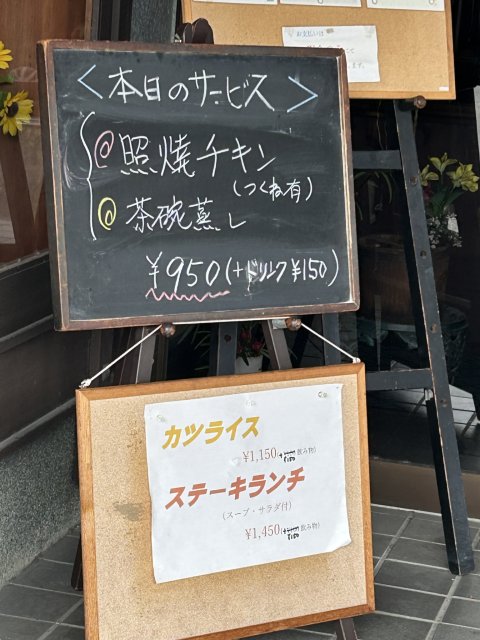 お支払いは
<本日のサービス>
@照焼チキン
(つくね有)
@茶碗蒸し
¥950(+ドリンク¥150)
カツライス
¥1,150(+¥150飲み物)
ステーキランチ
(スープ・サラダ付)
¥1,450(+¥150飲み物)